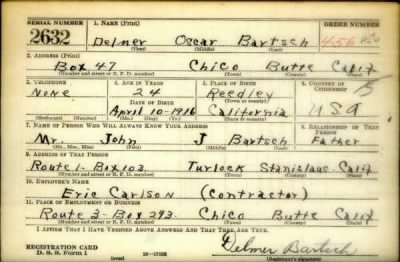 SERIAL NUMBER 1. NAME (Print) ORDER NUMBER
2632 Delmer Oscar Bartsch 456
(First) (Middle) (Last)
2. ADDRESS (Print)
Box 47 Chico Butte Calif
(Number and street or R. F. D. number) (Town) (County) (State)
3. TELEPHONE 4. AGE IN YEARS 5. PLACE OF BIRTH 6. COUNTRY OF CITIZENSHIP
None 24 Reedley
DATE OF BIRTH (Town or county)
April 10-1916 California USA
(Exchange) (Number) (Mo.) (Day) (Yr.) (State or country)
7. NAME OF PERSON WHO WILL ALWAYS KNOW YOUR ADDRESS 8. RELATIONSHIP OF THAT PERSON
Mr. John J Bartsch Father
(Mr., Mrs., Miss) (First) (Middle) (Last)
9. ADDRESS OF THAT PERSON
Route 1-Box 103 Turlock Stanislaus-Calif
(Number and street or R. F. D. number) (Town) (County) (State)
10. EMPLOYER'S NAME
Eric Carlson (Contractor)
11. PLACE OF EMPLOYMENT OR BUSINESS
Route 3-Box 393 Chico Butte Calif
(Number and street or R. F. D. number) (Town) (County) (State)
I AFFIRM THAT I HAVE VERIFIED ABOVE ANSWERS AND THAT THEY ARE TRUE.
REGISTRATION CARD
D. S. S. Form 1 16-17105 Delmer Bartsch
(Registrant's signature)